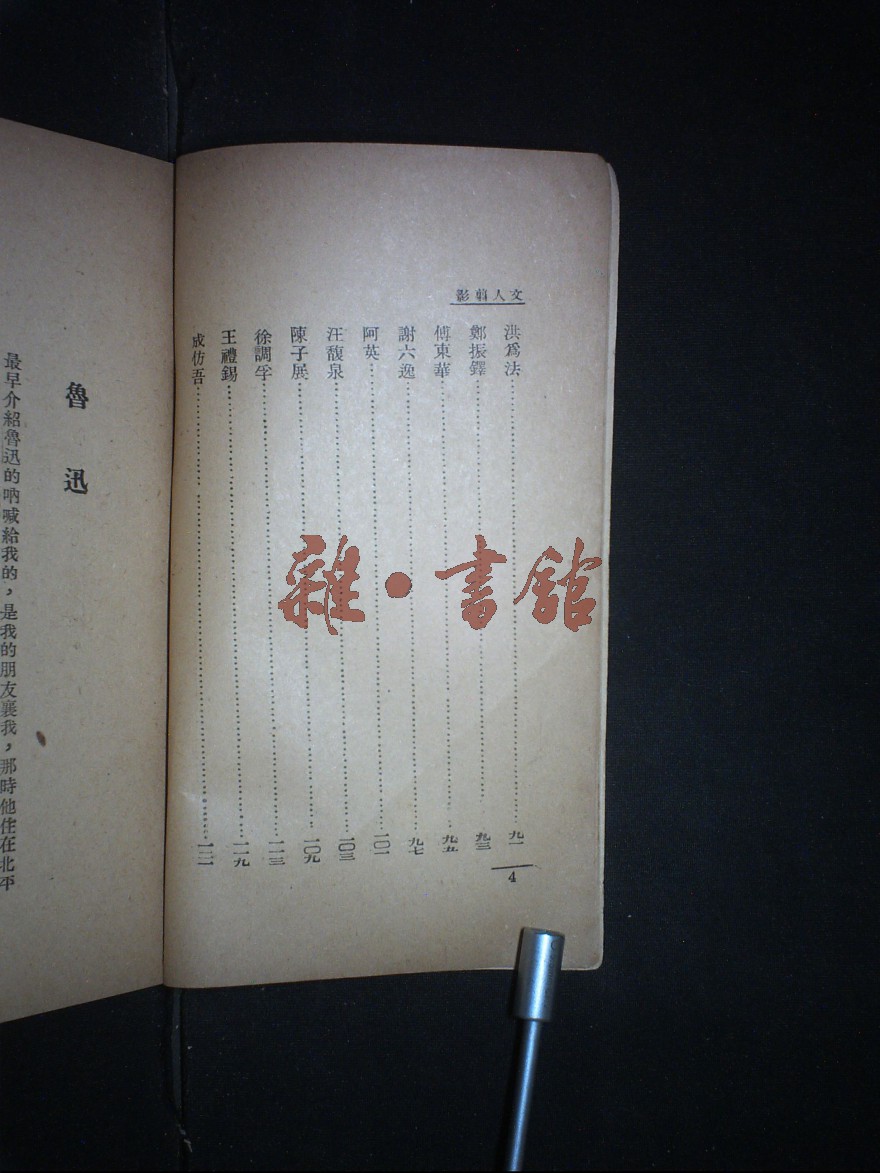 文人剪影
洪為法⋯⋯九一
鄭振鐸⋯⋯九三
傅東華⋯⋯九五
謝六逸⋯⋯九七
阿英⋯⋯一〇一
汪馥泉⋯⋯一〇三
陳子展⋯⋯一〇九
徐調孚⋯⋯一一三
王禮錫⋯⋯一一九
成仿吾⋯⋯一二一
4
魯迅
最早介紹魯迅的吶喊給我的，是我的朋友襄我，那時他住在北平
雜·書館